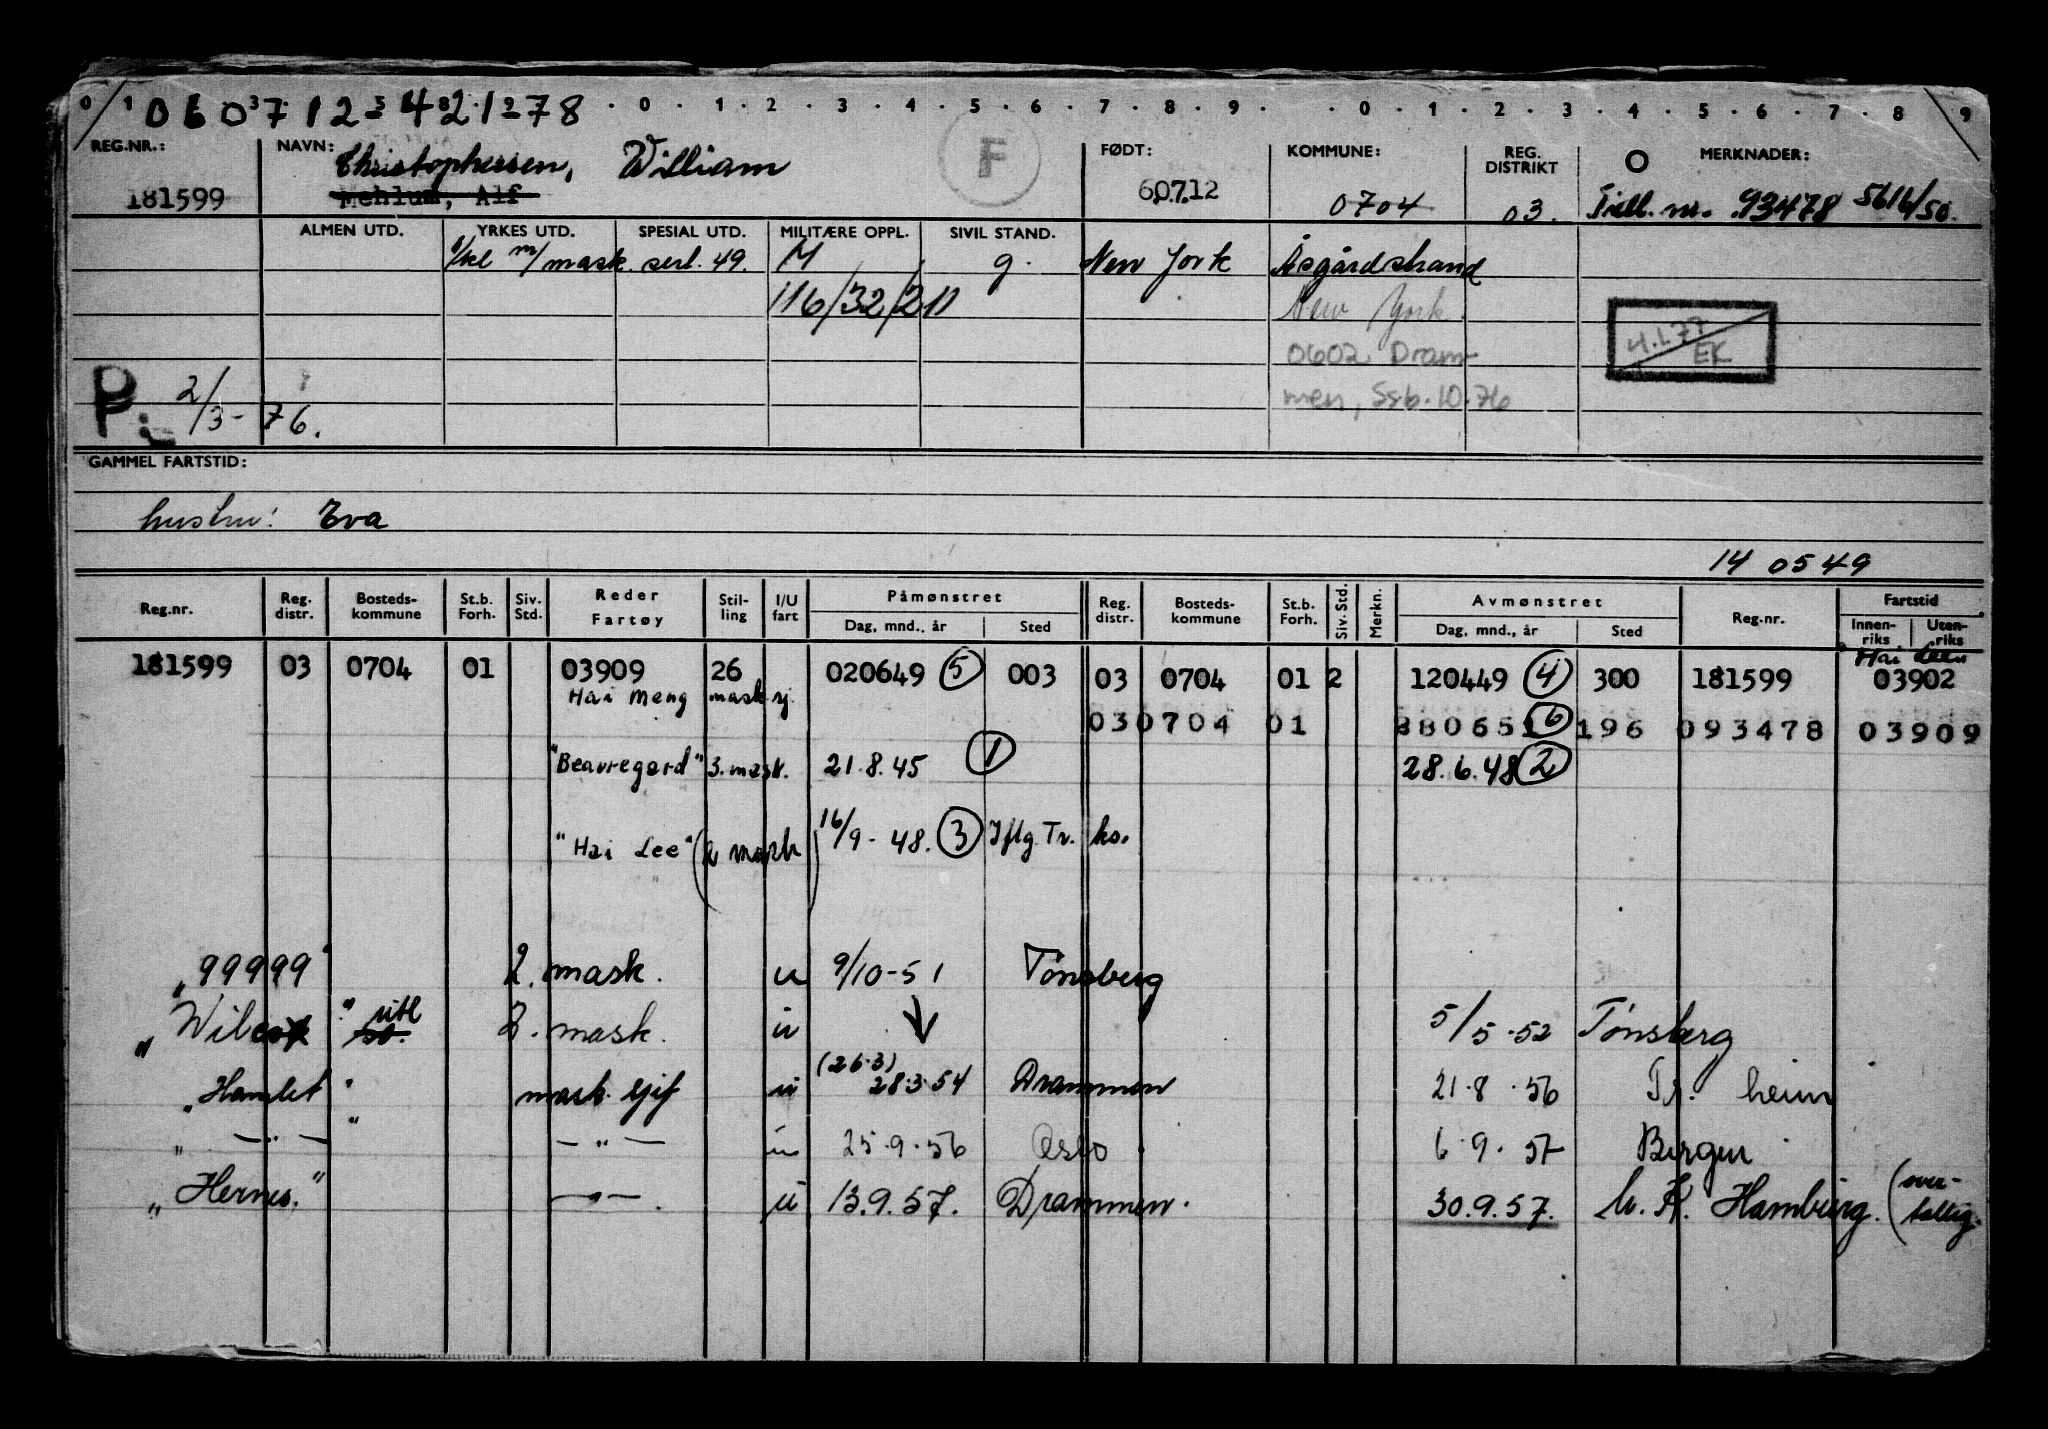 0 1 060712 - 42178 . 0 . 1 . 2 . 3 . 4 . 5 . 6 . 7 . 8 . 9 . . 0 . 1 . 2 . 3 . 4 . 5 . 6 . 7 . 8 . 9
REG.NR.: NAVN: Christophersen, William F FØDT: KOMMUNE: REG. DISTRIKT O MERKNADER:
181599 Mehlum, Alf 60712 0704 03. Till. nr. 93478 5614/50.
ALMEN UTD. YRKES UTD. SPESIAL UTD. MILITÆRE OPPL. SIVIL STAND.
1/kl m/mask. sert. 49. M g. New York Åsgårdstrand
116/32/211 New York
4.1.77 EK
0602 Dram-
P. 2/3-76. men, Ssb. 10.76
GAMMEL FARTSTID:
hustru: Eva
14 05 49
Reg.nr. Reg. distr. Bosteds-kommune St.b. Forh. Siv. Std. Reder Fartøy Stil-ling I/U fart Påmønstret Dag, mnd., år Sted Reg. distr. Bosteds-kommune St.b. Forh. Siv. Std. Merkn. Avmønstret Dag, mnd., år Sted Reg.nr. Fartstid Innen-riks Uten-riks
Hai Lee
181599 03 0704 01 03909 26 020649 5 003 03 0704 01 2 120449 4 300 181599 03902
Hai Meng mask sj.
03 0704 01 6 196 093478 03909
"Beauregard" 3. mask. 21.8.45 1 28.6.48 2
"Hai Lee" (2 mask) 16/9-48. 3 Iflg. Tr. ks.
"99999" 2. mask. u 9/10-51 Tønsberg
"Wilcox" utl 2. mask. u 5/5.52 Tønsberg
"Hamlet" mask. sjef u (26.3) 28.3.54 Drammen 21.8.56 Tr. heim
" — " — " — " — u 25.9.56 Oslo 6.9.57 Bergen
"Hernes." — " — u 13.9.57. Drammen. 30.9.57. Hamburg. (over-
tallig.